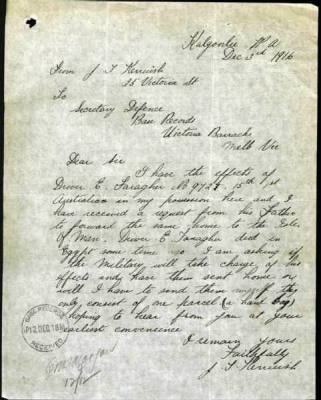 Kalgoorlie W A
Dec 3rd 1916
From J T Kerruish
25 Victoria St
To
Secretary Defence
Base Records
Victoria Barracks
Melb Vic
Dear Sir
I have the effects of
Driver E. Faragher No 9727. 15th
Australian in my possession here and I
have received a request from his Father
to forward the same home to the Isle
of Man. Driver E Faragher died in
Egypt some time ago I am asking if
the Military will take charge of his
effects and have them sent home or
will I have to send them myself they
only consist of one parcel (a hand bag)
hoping to hear from you at your
earliest convenience
I remain yours
Faithfully
J T Kerruish
BASE RECORDS
12 DEC 1916
RECEIVED
12/12